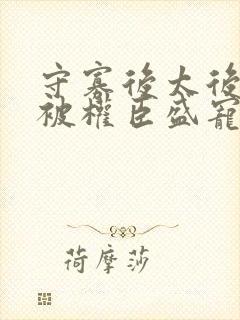 守寡後太後
被權臣盛寵
荷摩莎